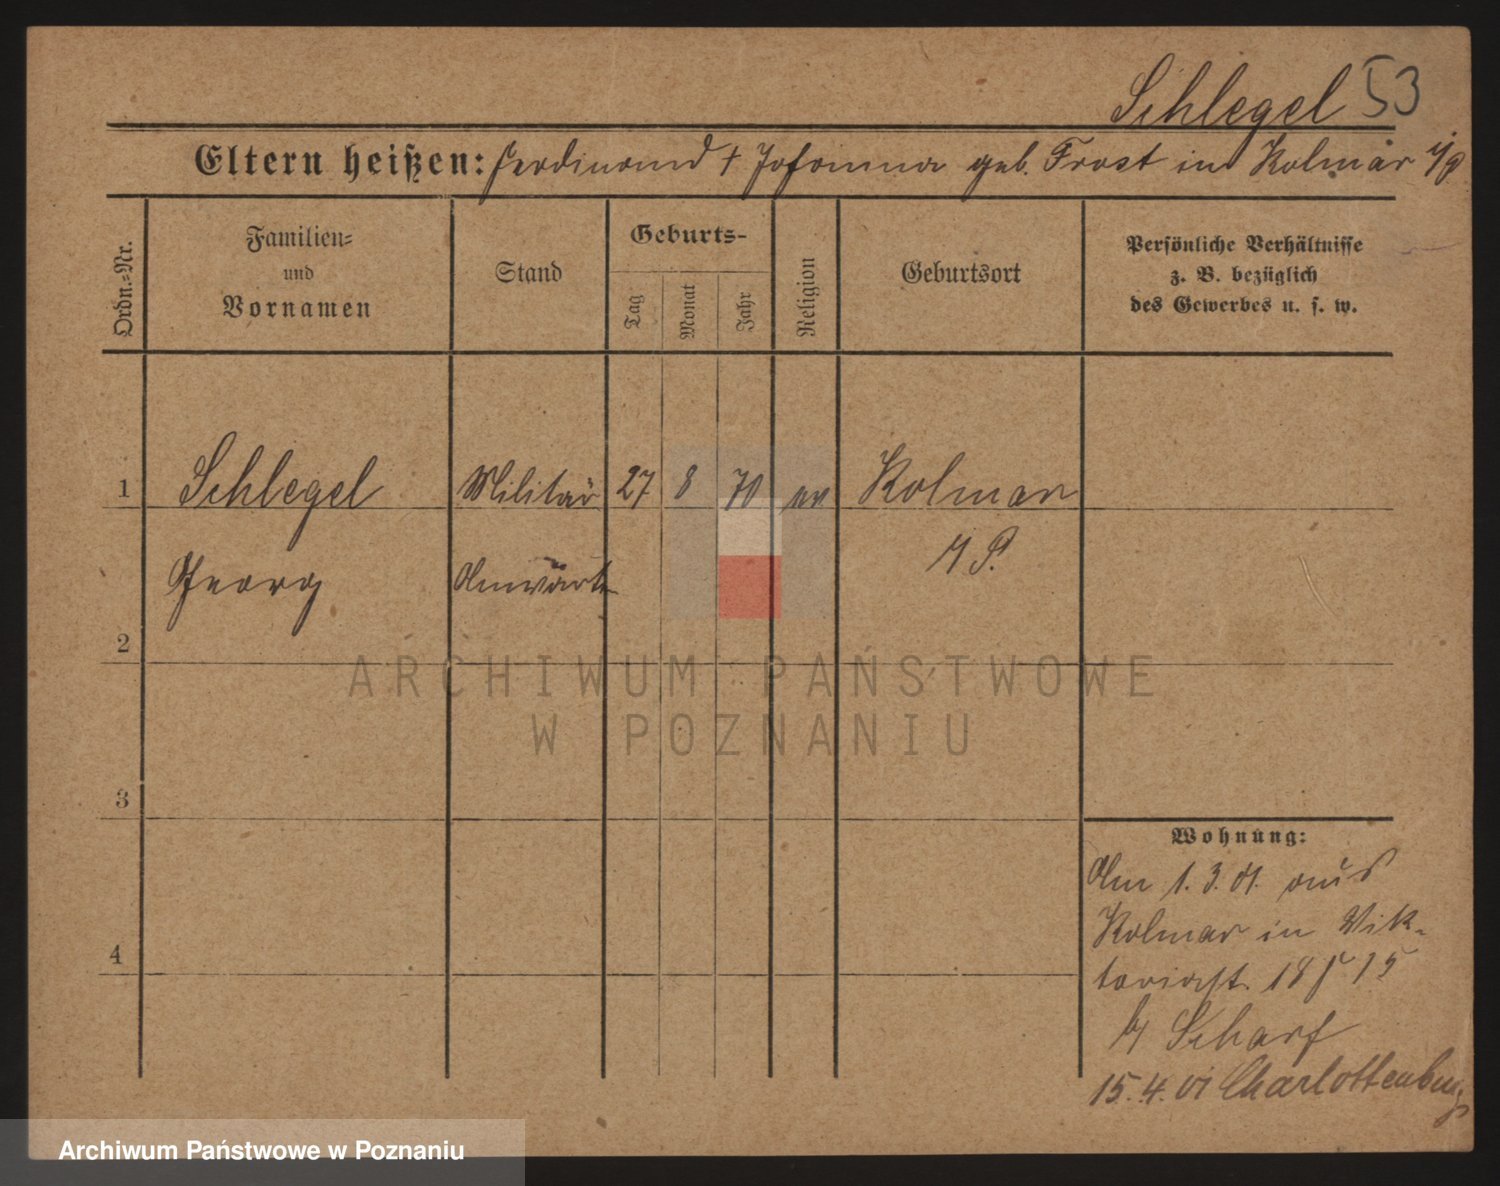 Schlegel 53
Eltern heißen: Ferdinand + Johanna geb. Frost in Kolmar i/P
Ordn.-Nr.
Familien-
und
Vornamen
Stand
Geburts-
Tag
Monat
Jahr
Religion
Geburtsort
Persönliche Verhältnisse
z. B. bezüglich
des Gewerbes u. s. w.
1 Schlegel Militär 27 8 70 ev Kolmar
Georg Anwärter
i/P.
2
ARCHIWUM PAŃSTWOWE
W POZNANIU
3
Wohnung:
Am 1. 3. 01. aus
Kolmar in Vik-
4
toriast. 18 15
b/ Scharf
15. 4. 01 Charlottenburg
Archiwum Państwowe w Poznaniu